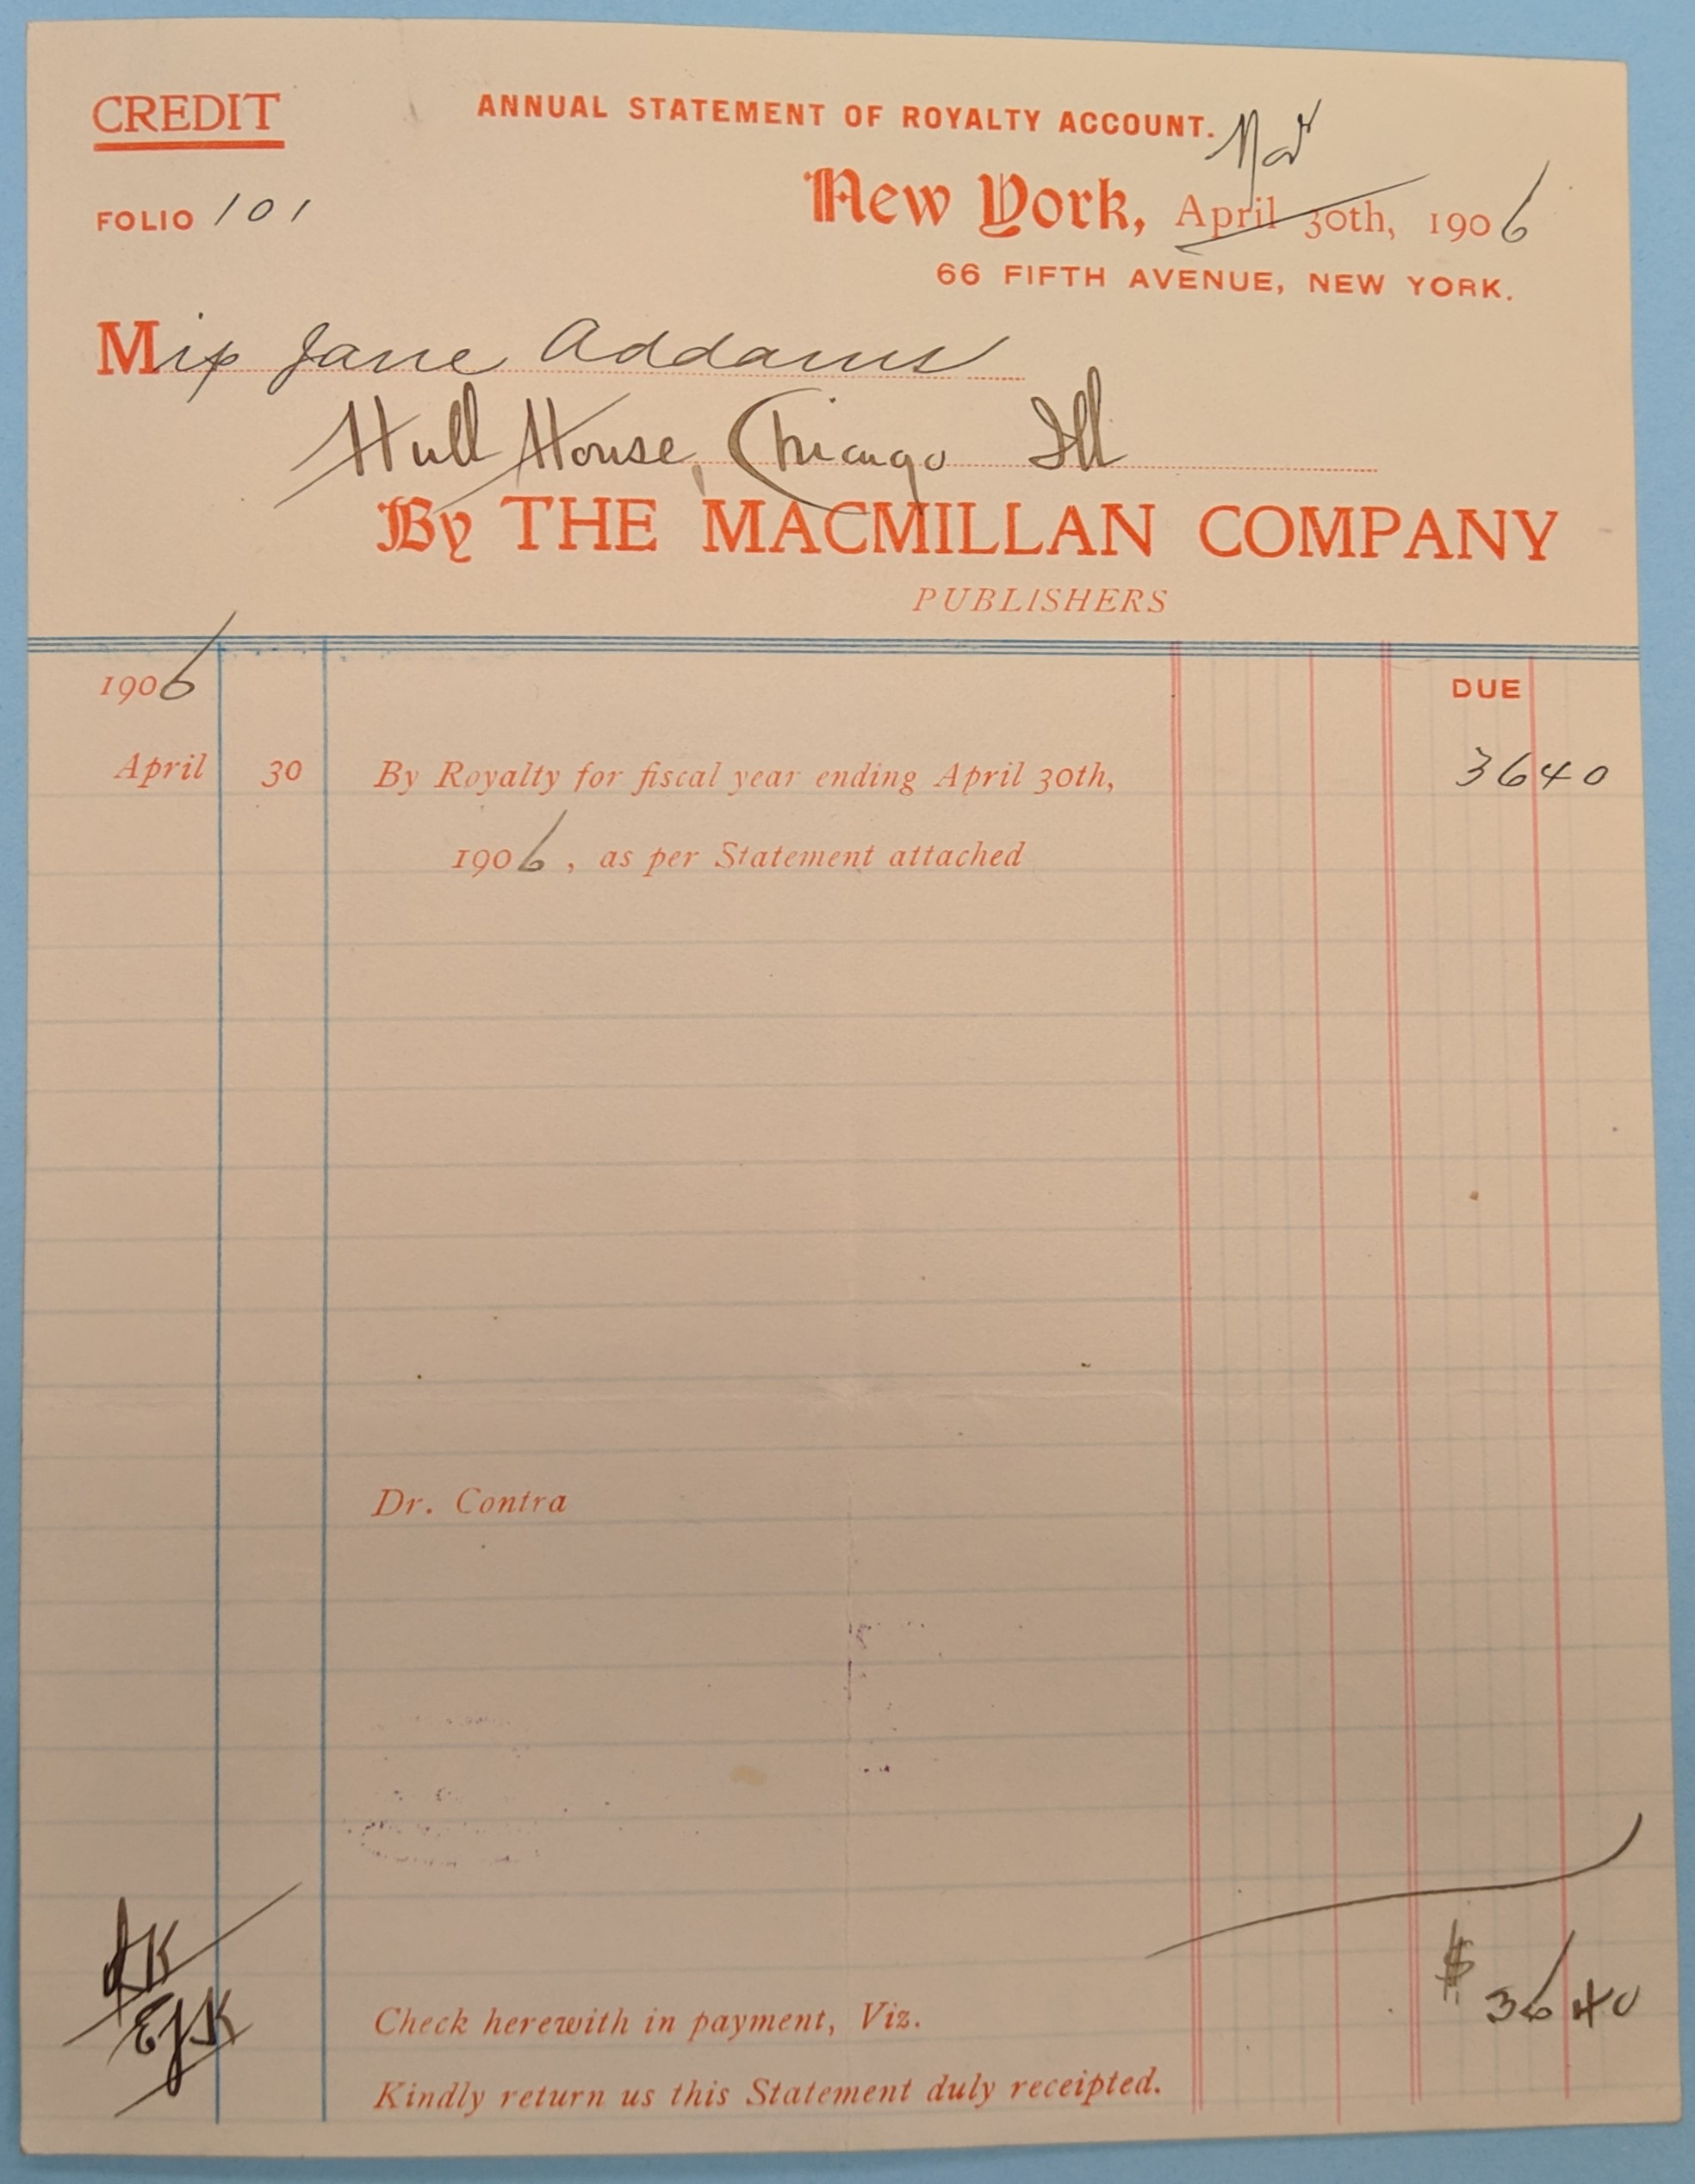 CREDIT
ANNUAL STATEMENT OF ROYALTY ACCOUNT.
Nov
FOLIO 101
New York, April 30th, 1906
66 FIFTH AVENUE, NEW YORK.
Miss Jane Addams
Hull House, Chicago Ill
By THE MACMILLAN COMPANY
PUBLISHERS
1906
DUE
April 30 By Royalty for fiscal year ending April 30th, 36 40
1906, as per Statement attached
Dr. Contra
OK
EJK
$ 36 40
Check herewith in payment, Viz.
Kindly return us this Statement duly receipted.